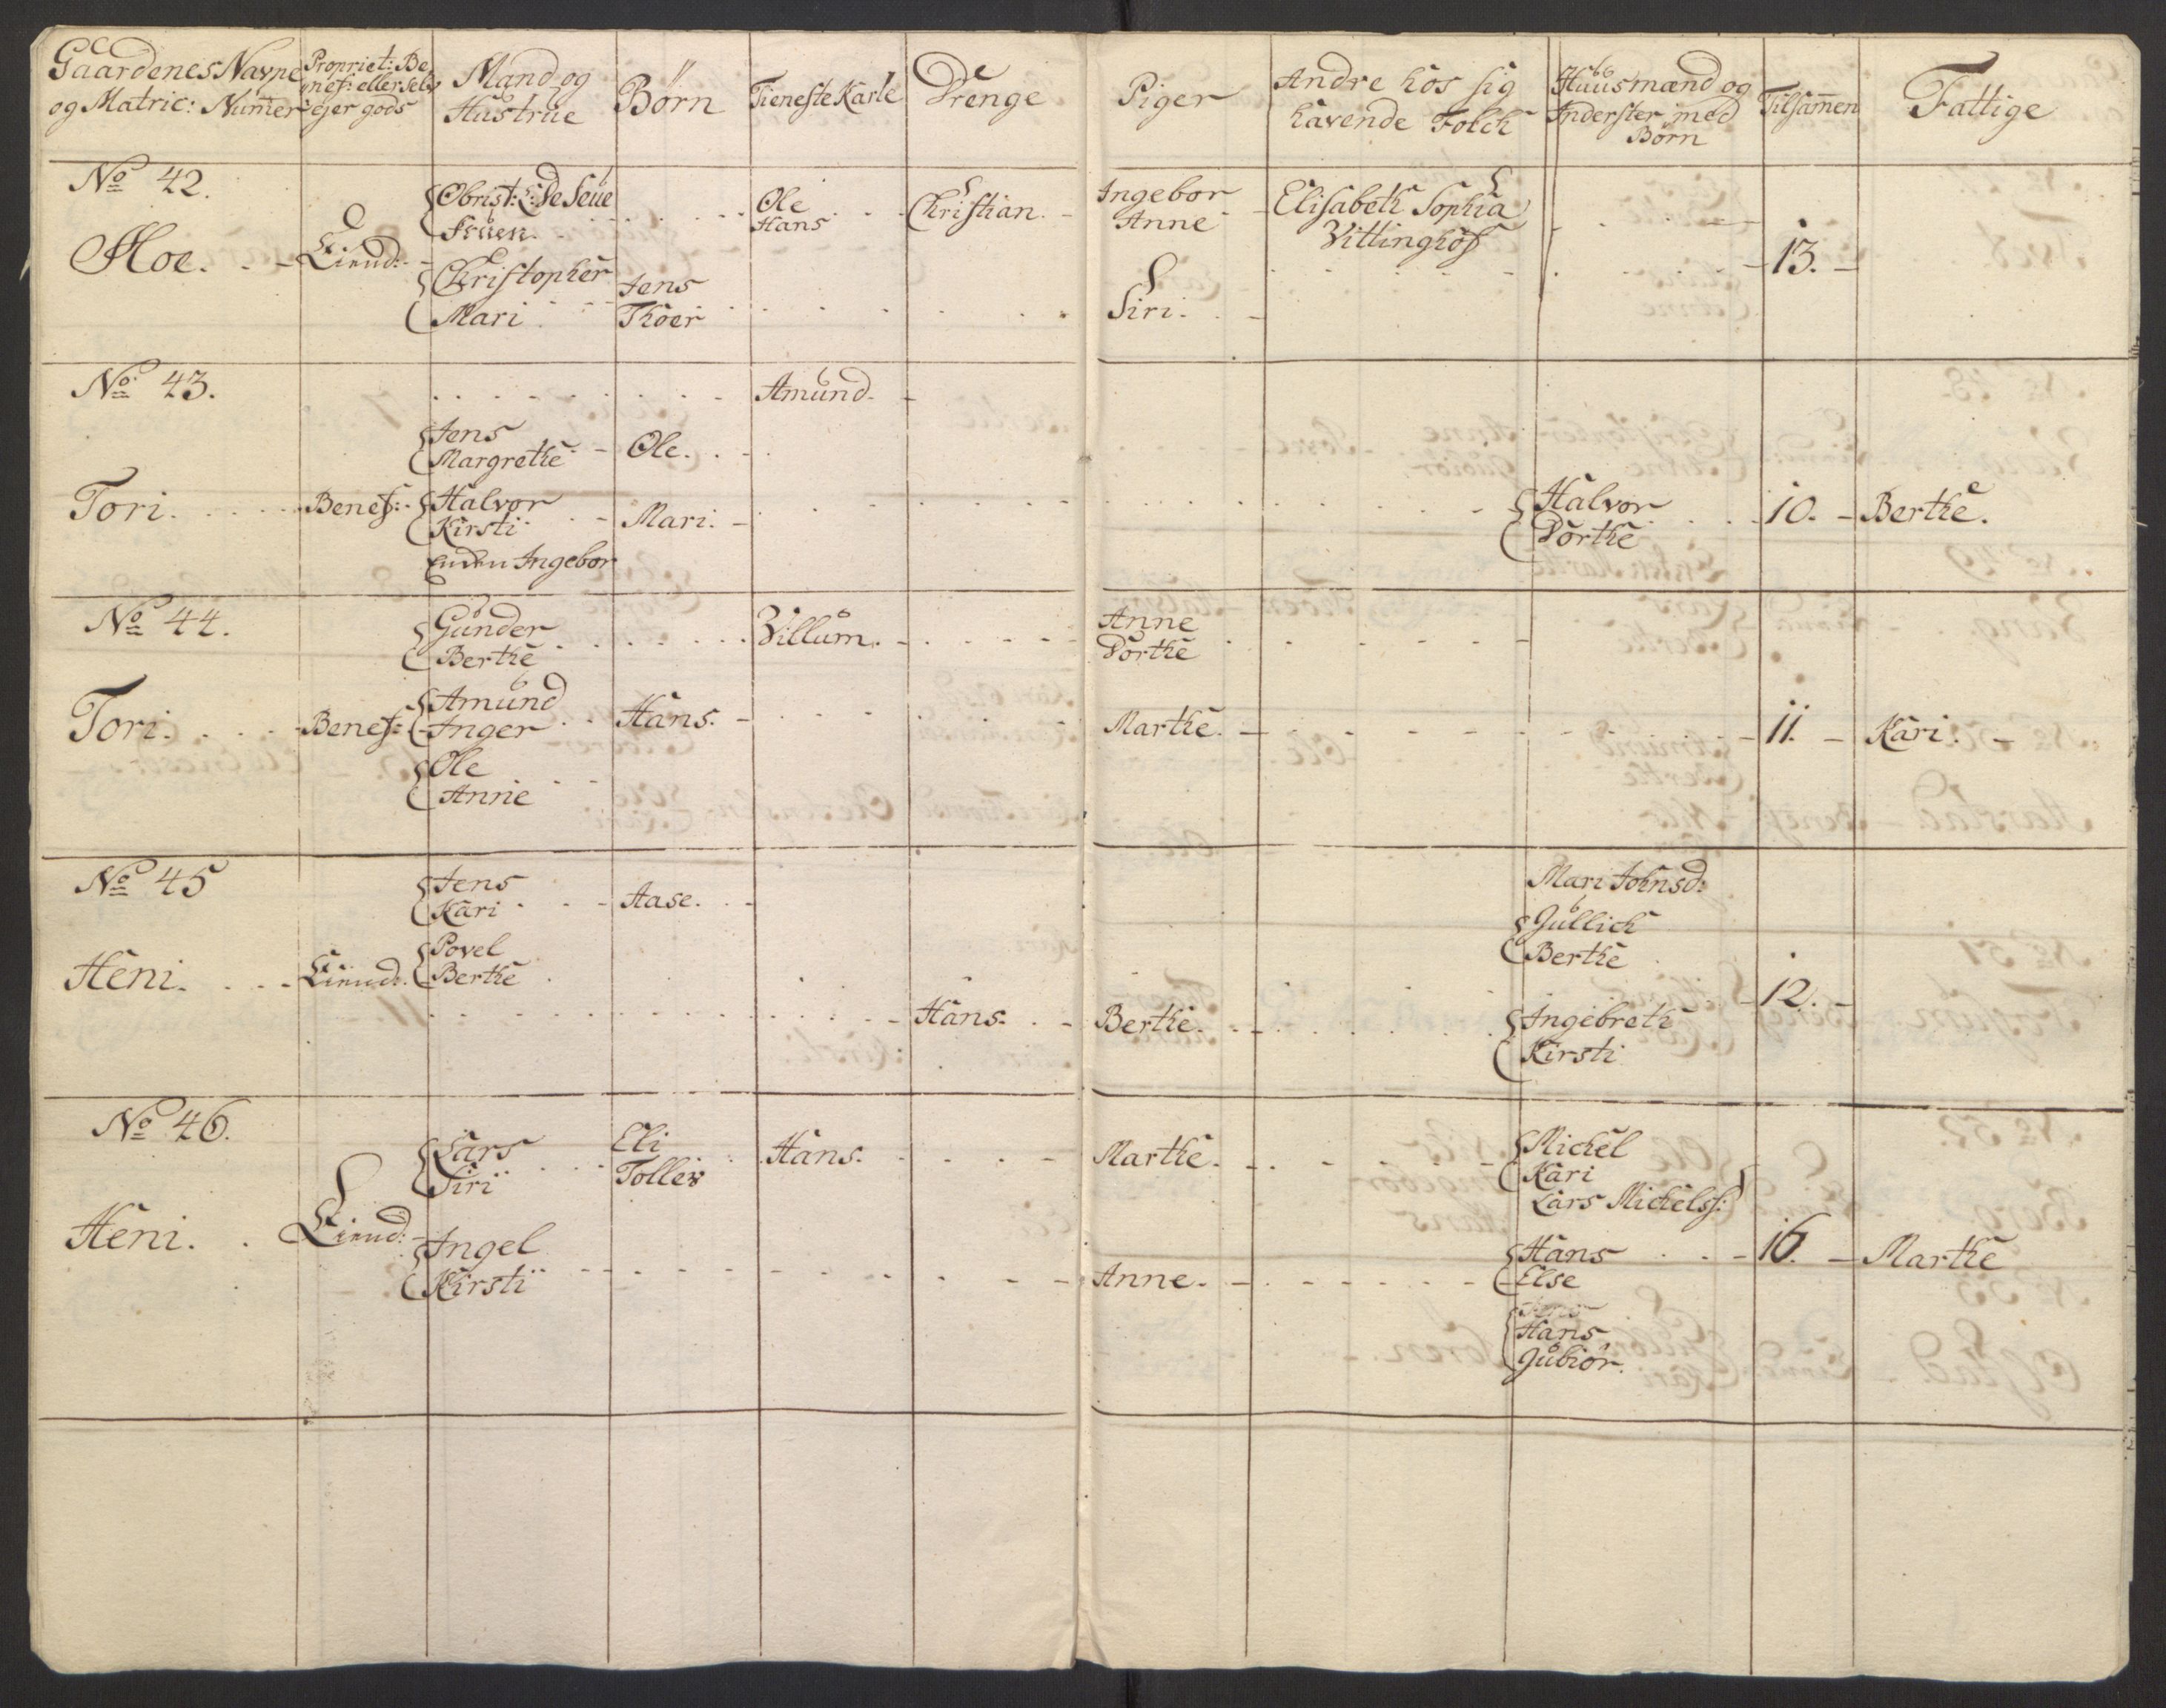 Gaardenes Navne
og Matric: Numer
Propriet: Be
nef: eller Selv
ejer gods
Mand og
Hustrue
Børn
Tieneste Karle
Drenge
Piger
Andre hos sig
havende Folck
Huusmænd og
Inderster med
Børn
Tilsamen
Fattige
No 42.
Hoe.
Eiend:
Obrist: L: De Seue
Fruen
Christopher
Mari
Jens
Thoer
Ole
Hans
Christian.
Ingebor
Anne
Siri.
Elisabeth Sophia
Vittinghof
13.
No 43.
Tori.
Benef:
Amund
Jens
Margrethe
Ole.
Halvor
Kirsti
Mari.
Enken Ingebor
Halvor
Dorthe
10.
Berthe.
No 44.
Tori.
Benef:
Gunder
Berthe
Villum.
Anne
Dorthe
Amund
Inger
Hans.
Marthe.
Ole
Anne
11.
Kari.
No 45
Heni.
Eiend:
Jens
Kari
Aase.
Povel
Berthe
Hans.
Berthe.
Mari Johnsd:
Gullich
Berthe
Ingebreth
Kirsti
12.
No 46.
Heni.
Eiend:
Lars
Siri
Eli
Tollev
Hans.
Marthe.
Ingel
Kirsti
Anne.
Michel
Kari
Lars Michelss:
Hans
Else
Hans
Gubiør.
16.
Marthe